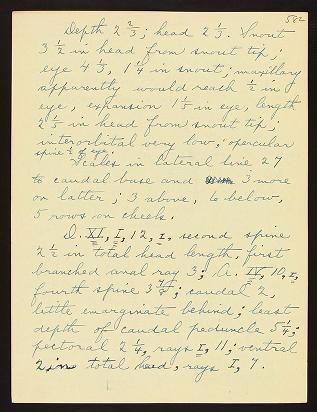 502
Depth 2 2/3; head 2 1/3. Snout
3 1/2 in head from snout tip;
eye 4 1/3, 1 1/4 in snout; maxillary
apparently would reach 1/2 in
eye, expansion 1 1/5 in eye, length
2 1/5 in head from snout tip;
interorbital very low; opercular
spine 1/2 of eye.
Scales in lateral line 27
to caudal base and 3 more
on latter; 3 above, 10 below,
5 rows on cheek.
D. XI, I, 12, I, second spine
2 1/2 in total head length, first
branched anal ray 3; A. IV, 10, I,
fourth spine 3 3/4; caudal 2,
little emarginate behind; least
depth of caudal peduncle 5 1/4;
pectoral 2 1/4, rays I, 11; ventral
2 in total head, rays I, 7.